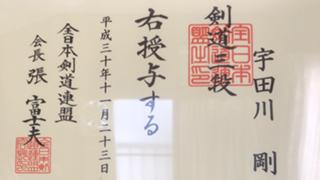 宇田川 剛
剣道三段
右授与する
平成三十年十一月二十三日
全日本剣道連盟
会長 張 富士夫